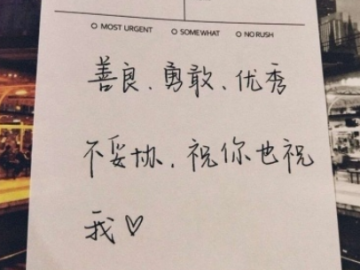 O MOST URGENT O SOMEWHAT O NO RUSH
善良、勇敢、优秀
不妥协，祝你也祝
我♡